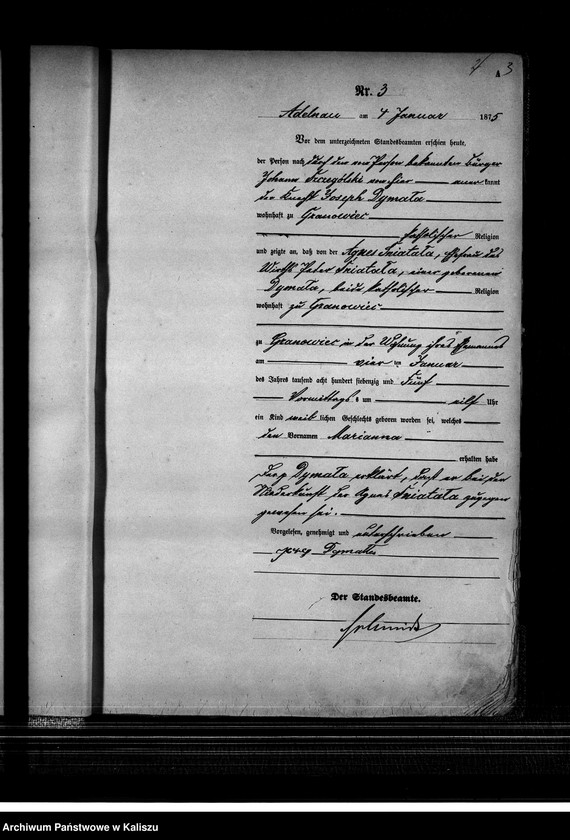 4
A 3
Nr. 3
Adelnau am 4 Januar 1875
Vor dem unterzeichneten Standesbeamten erschien heute,
der Person nach durch den von Person bekannten Bürger
Johann von hier kannt
der Knecht Joseph Dymała
wohnhaft zu Granowiec
katholischer Religion
und zeigte an, daß von der Agnes Śniatała, Ehefrau des
Wirths Peter Śniatała, einer geborenen
Dymała, beide katholischer Religion
wohnhaft zu Granowiec
zu Granowiec in der Wohnung ihres Ehemannes
am vier ten Januar
des Jahres tausend acht hundert siebenzig und fünf
Vormittags um eilf Uhr
ein Kind weib lichen Geschlechts geboren worden sei, welches
den Vornamen Marianna
erhalten habe
Dymała erklärt, daß er bei der
Niederkunft der Agnes Śniatała zugegen
gewesen sei.
Vorgelesen, genehmigt und unterschrieben
Dymała
Der Standesbeamte.
Schmidt
Archiwum Państwowe w Kaliszu